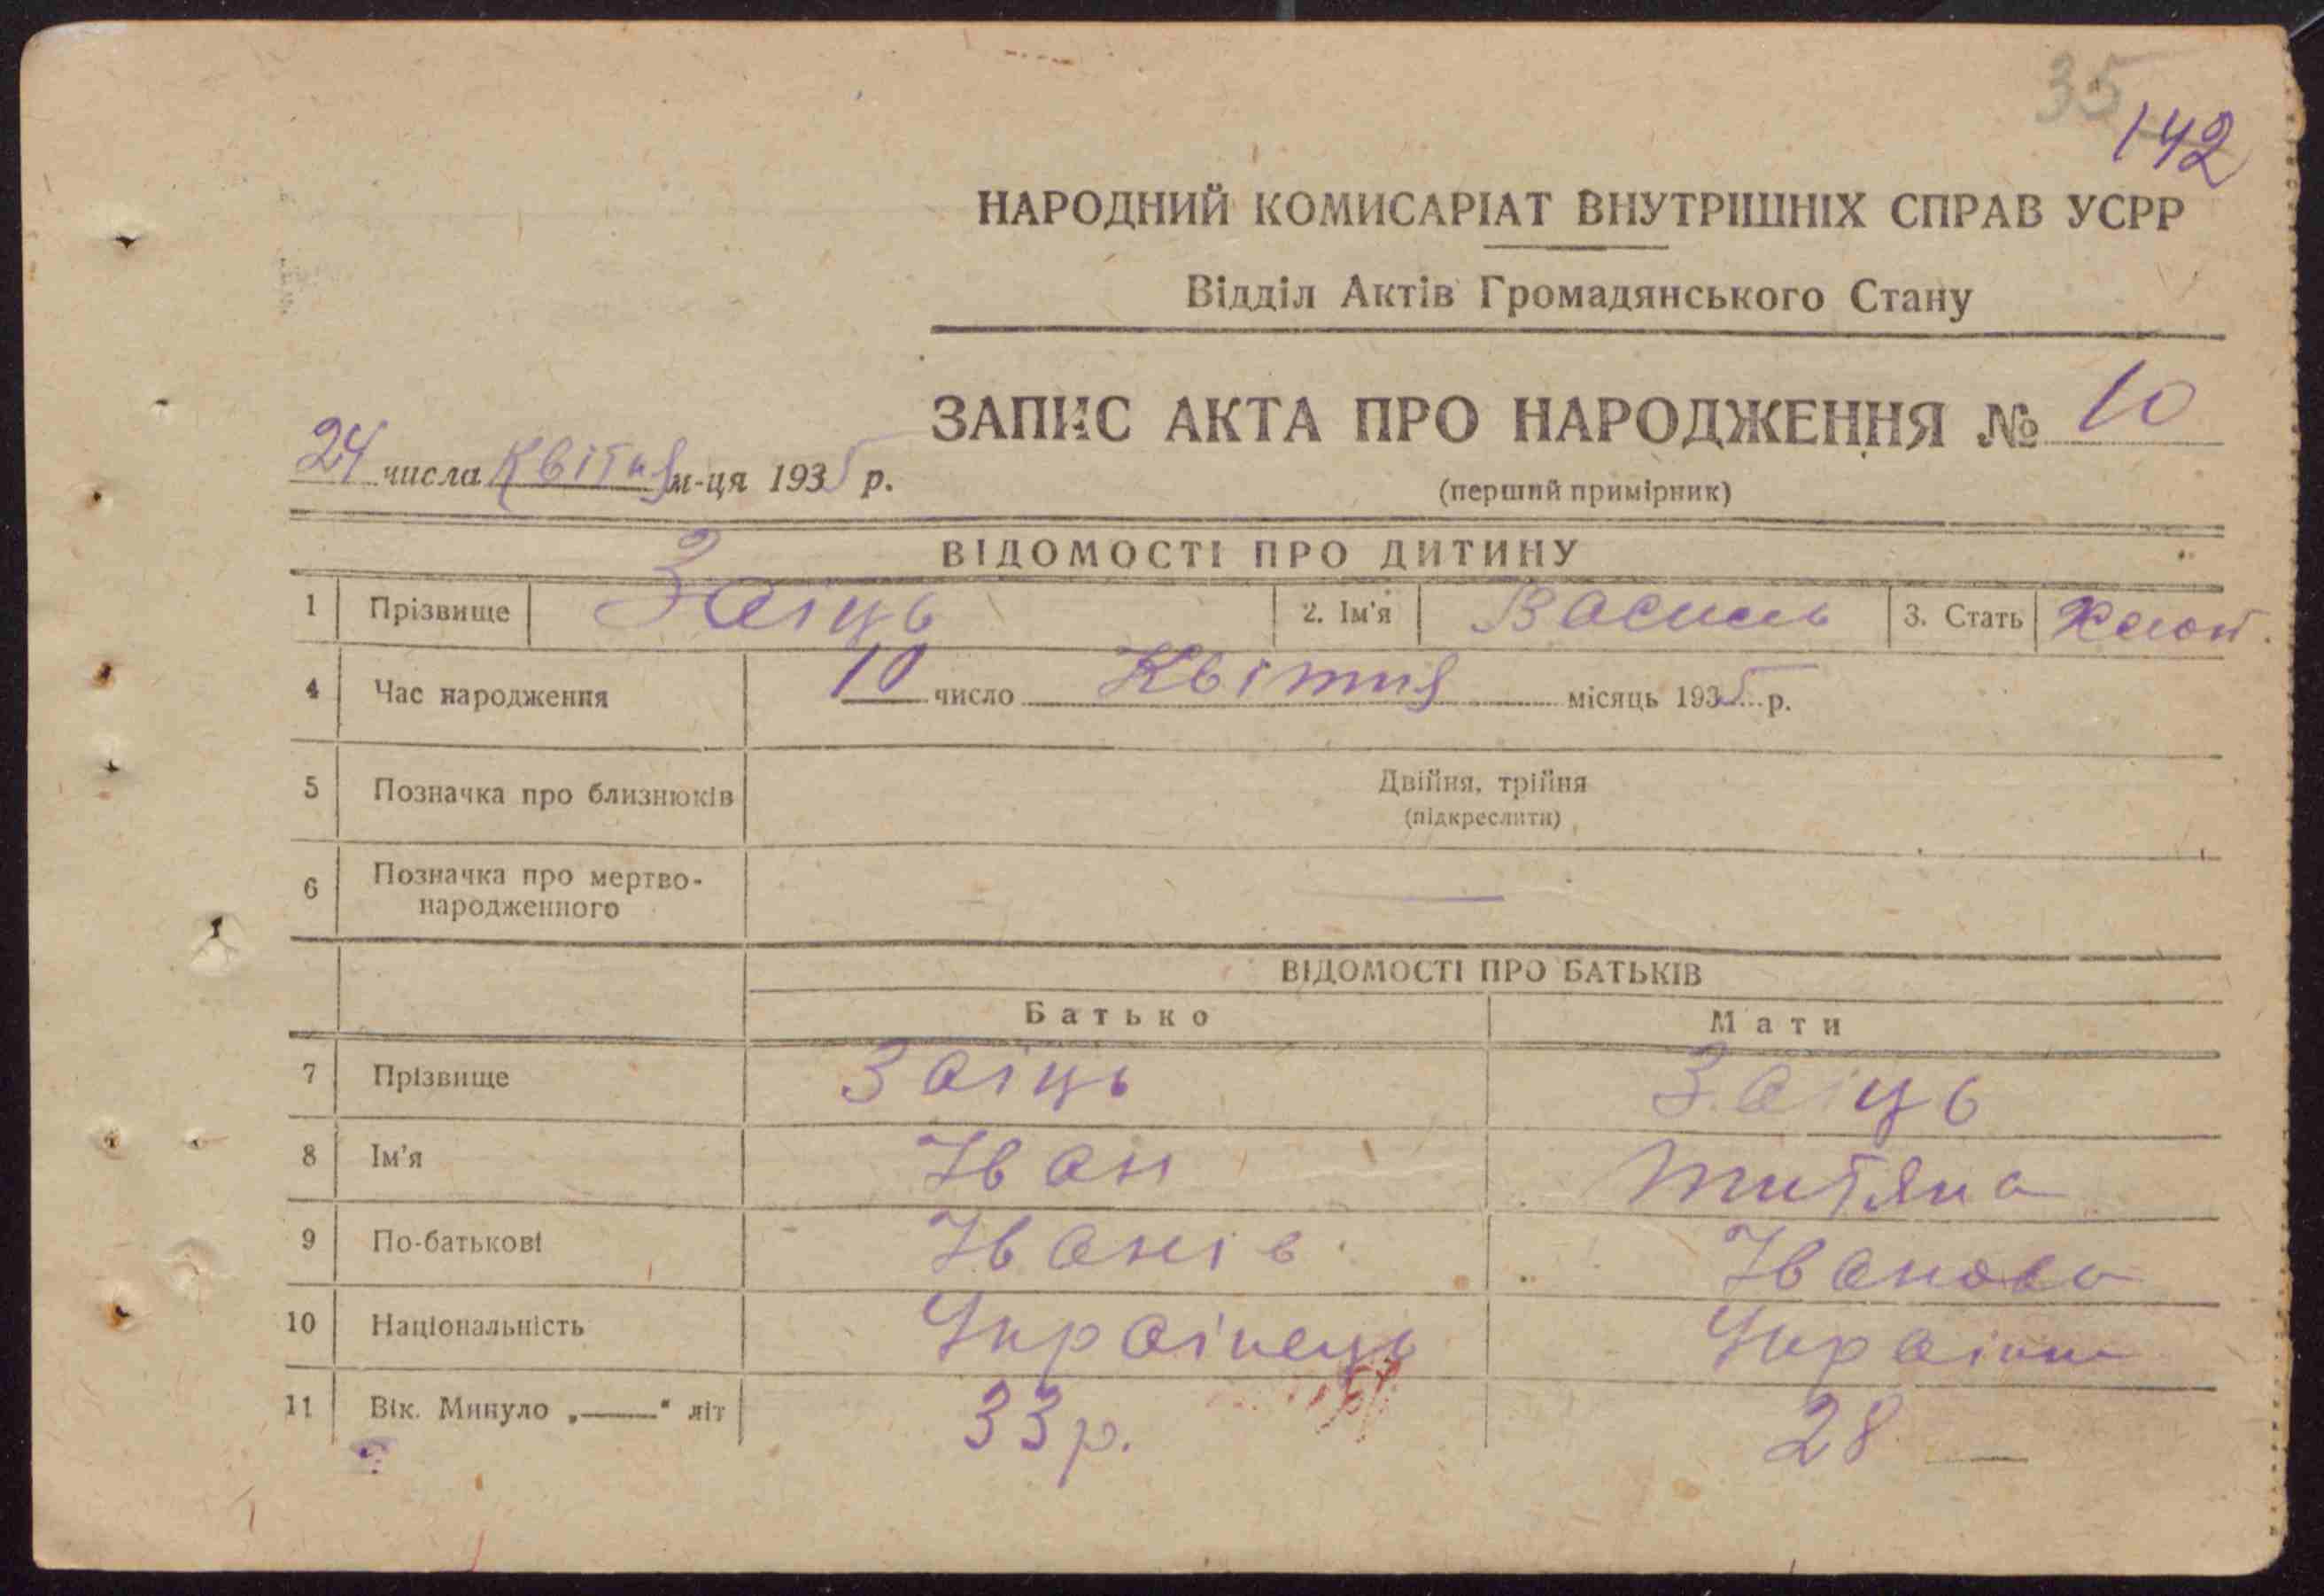 35
142
НАРОДНИЙ КОМИСАРІАТ ВНУТРІШНІХ СПРАВ УСРР
Відділ Актів Громадянського Стану
ЗАПИС АКТА ПРО НАРОДЖЕННЯ № 10
24 числа Квітня м-ця 1935 р.
(перший примірник)
ВІДОМОСТІ ПРО ДИТИНУ
1 Прізвище Заіць 2. Ім'я Василь 3. Стать Хлоп.
4 Час народження 10 число Квітня місяць 1935 р.
5 Позначка про близнюків Двійня, трійня
(підкреслити)
6 Позначка про мертво-
народженного —
ВІДОМОСТІ ПРО БАТЬКІВ
Батько Мати
7 Прізвище Заіць Заіць
8 Ім'я Іван Титяна
9 По-батькові Іванів Іванова
10 Національність Украінець Украінка
11 Вік. Минуло „——" літ 33 р. 28 —